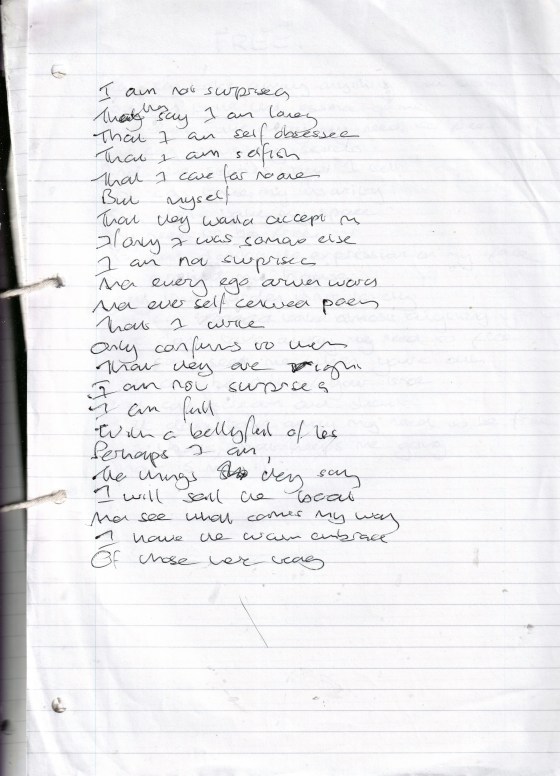 I am not surprised
That they say I am lonely
That I am self obsessed
That I am selfish
That I care for no one
But myself
That they would accept me
If only I was someone else
I am not surprised
That every ego driven word
That every self centred poem
That I write
Only confirms to them
That they are right
I am not surprised
I am full
With a bellyful of lies
Perhaps I am,
The things they say
I will sail the boat
And see what comes my way
I have the warm embrace
Of those